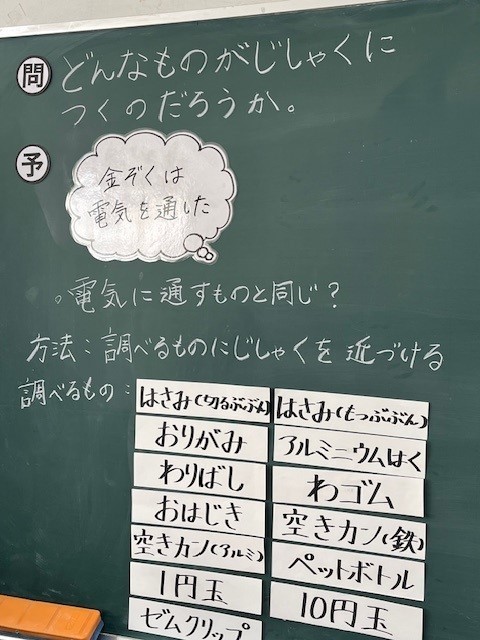 問 どんなものがじしゃくに
つくのだろうか。
予
金ぞくは
電気を通した
。電気に通すものと同じ?
方法:調べるものにじしゃくを近づける
調べるもの:
はさみ(切るぶぶん) はさみ(もつぶぶん)
おりがみ アルミニウムはく
わりばし わゴム
おはじき 空きカン(鉄)
空きカン(アルミ) ペットボトル
1円玉 10円玉
ゼムクリップ